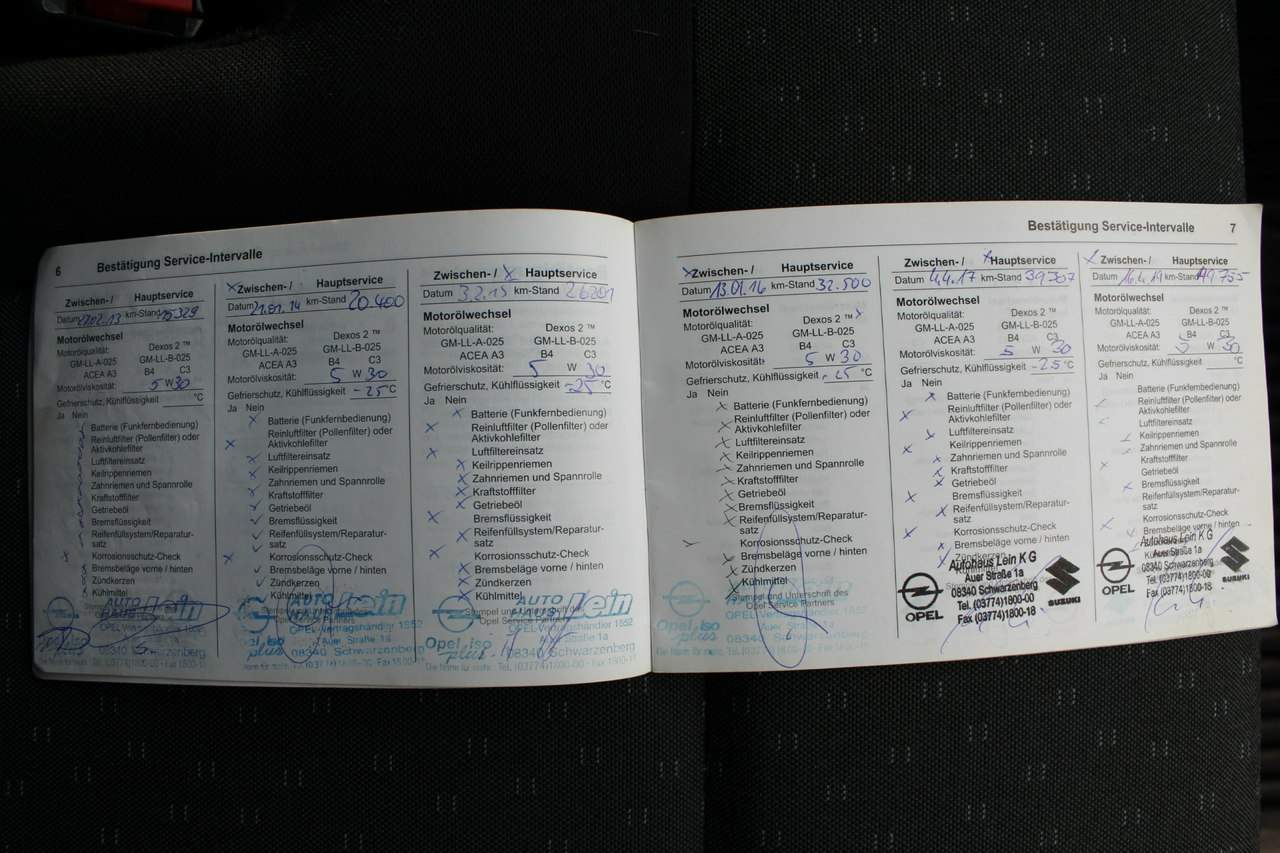 6 Bestätigung Service-Intervalle
Zwischen-/ Hauptservice
Datum km-Stand 15329
Motorölwechsel
Motorölqualität: Dexos 2 ™
GM-LL-A-025 GM-LL-B-025
ACEA A3 B4 C3
Motorölviskosität: 5 W 30
Gefrierschutz, Kühlflüssigkeit °C
Ja Nein
Batterie (Funkfernbedienung)
Reinluftfilter (Pollenfilter) oder
Aktivkohlefilter
Luftfiltereinsatz
Keilrippenriemen
Zahnriemen und Spannrolle
Kraftstofffilter
Getriebeöl
Bremsflüssigkeit
Reifenfüllsystem/Reparatur-
satz
Korrosionsschutz-Check
Bremsbeläge vorne / hinten
Zündkerzen
Kühlmittel
AUTO Lein
OPEL
08340 Schwarzenberg
Zwischen-/ Hauptservice
Datum km-Stand 20.400
Motorölwechsel
Motorölqualität: Dexos 2 ™
GM-LL-A-025 GM-LL-B-025
ACEA A3 B4 C3
Motorölviskosität: 5 W 30
Gefrierschutz, Kühlflüssigkeit -25 °C
Ja Nein
Batterie (Funkfernbedienung)
Reinluftfilter (Pollenfilter) oder
Aktivkohlefilter
Luftfiltereinsatz
Keilrippenriemen
Zahnriemen und Spannrolle
Kraftstofffilter
Getriebeöl
Bremsflüssigkeit
Reifenfüllsystem/Reparatur-
satz
Korrosionsschutz-Check
Bremsbeläge vorne / hinten
Zündkerzen
Kühlmittel
AUTO Lein
OPEL-Vertragshändler
Auer Straße 1a
08340 Schwarzenberg
Zwischen- / Hauptservice
Datum 3.2.15 km-Stand 26201
Motorölwechsel
Motorölqualität: Dexos 2 ™
GM-LL-A-025 GM-LL-B-025
ACEA A3 B4 C3
Motorölviskosität: 5 W 30
Gefrierschutz, Kühlflüssigkeit -25 °C
Ja Nein
Batterie (Funkfernbedienung)
Reinluftfilter (Pollenfilter) oder
Aktivkohlefilter
Luftfiltereinsatz
Keilrippenriemen
Zahnriemen und Spannrolle
Kraftstofffilter
Getriebeöl
Bremsflüssigkeit
Reifenfüllsystem/Reparatur-
satz
Korrosionsschutz-Check
Bremsbeläge vorne / hinten
Zündkerzen
Kühlmittel
AUTO Lein
Opel Service Partners
Opel iso plus
08340 Schwarzenberg
Bestätigung Service-Intervalle 7
Zwischen- / Hauptservice
Datum 13.01.16 km-Stand 32.500
Motorölwechsel
Motorölqualität: Dexos 2 ™
GM-LL-A-025 GM-LL-B-025
ACEA A3 B4 C3
Motorölviskosität: 5 W 30
Gefrierschutz, Kühlflüssigkeit -25 °C
Ja Nein
Batterie (Funkfernbedienung)
Reinluftfilter (Pollenfilter) oder
Aktivkohlefilter
Luftfiltereinsatz
Keilrippenriemen
Zahnriemen und Spannrolle
Kraftstofffilter
Getriebeöl
Bremsflüssigkeit
Reifenfüllsystem/Reparatur-
satz
Korrosionsschutz-Check
Bremsbeläge vorne / hinten
Zündkerzen
Kühlmittel
Stempel und Unterschrift des
Opel Service Partners
Zwischen- / Hauptservice
Datum 4.4.17 km-Stand 39307
Motorölwechsel
Motorölqualität: Dexos 2 ™
GM-LL-A-025 GM-LL-B-025
ACEA A3 B4 C3
Motorölviskosität: 5 W 30
Gefrierschutz, Kühlflüssigkeit -25 °C
Ja Nein
Batterie (Funkfernbedienung)
Reinluftfilter (Pollenfilter) oder
Aktivkohlefilter
Luftfiltereinsatz
Keilrippenriemen
Zahnriemen und Spannrolle
Kraftstofffilter
Getriebeöl
Bremsflüssigkeit
Reifenfüllsystem/Reparatur-
satz
Korrosionsschutz-Check
Bremsbeläge vorne / hinten
Zündkerzen
Autohaus Lein K G
Auer Straße 1a
08340 Schwarzenberg
Tel. (03774)1800-00
Fax (03774)1800-18
OPEL
SUZUKI
Zwischen- / Hauptservice
Datum km-Stand 49755
Motorölwechsel
Motorölqualität: Dexos 2 ™
GM-LL-A-025 GM-LL-B-025
ACEA A3 B4 C3
Motorölviskosität: W 30
Gefrierschutz, Kühlflüssigkeit °C
Ja Nein
Batterie (Funkfernbedienung)
Reinluftfilter (Pollenfilter) oder
Aktivkohlefilter
Luftfiltereinsatz
Keilrippenriemen
Zahnriemen und Spannrolle
Kraftstofffilter
Getriebeöl
Bremsflüssigkeit
Reifenfüllsystem/Reparatur-
satz
Korrosionsschutz-Check
Bremsbeläge vorne / hinten
Autohaus Lein K G
Auer Straße 1a
08340 Schwarzenberg
Tel. (03774)1800-00
Fax (03774)1800-18
OPEL
SUZUKI